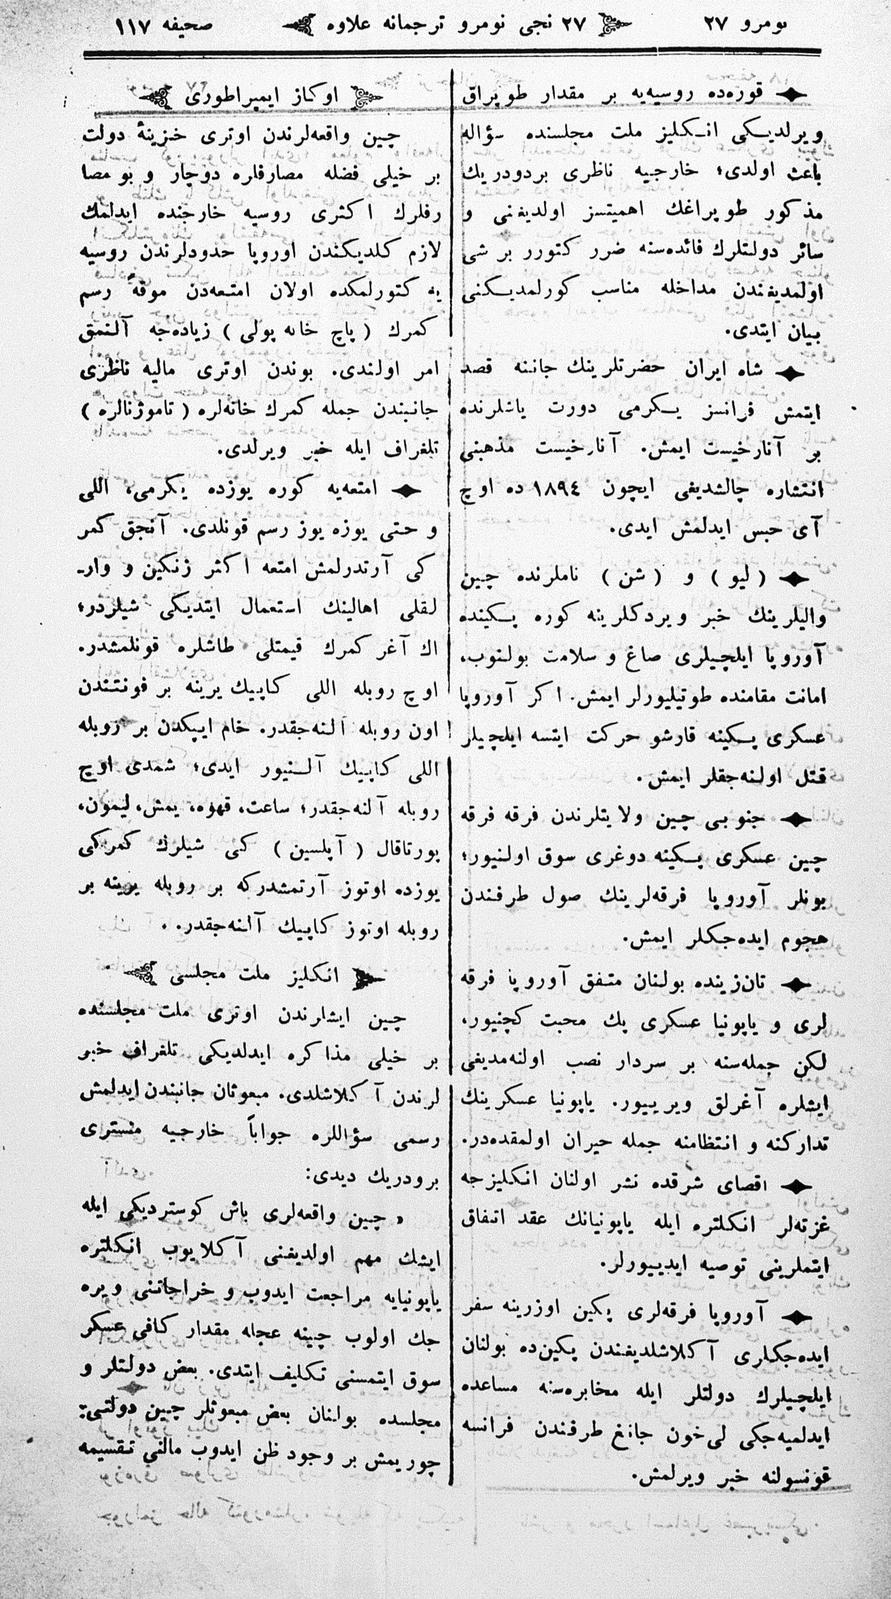 نومرو ٢٧
٢٧ نجی نومرو ترجمانه علاوه
صحیفه ١١٧
قوره‌ده روسیه‌یه بر مقدار طوپراق
ویرلدیکی انکلیز ملت مجلسنده سؤاله
باعث اولدی؛ خارجیه ناظری بردودریك
مذکور طوپراغك اهمیتسز اولدیغنی و
سائر دولتلرك فائده‌سنه ضرر کتورر بر شی
اولمدیغندن مداخله مناسب کورلمدیکنی
بیان ایتدی.
شاه ایران حضرتلرینك جاننه قصد
ایتمش فرانسز یکرمی دورت یاشلرنده
بر آنارخیست ایمش. آنارخیست مذهبنی
انتشاره چالشدیغی ایچون ١٨٩٤ ده اوچ
آی حبس ایدلمش ایدی.
(لیو) و (شن) ناملرنده چین
والیلرینك خبر ویردکلرینه کوره پکینده
آوروپا ایلچیلری صاغ و سلامت بولنوب،
امانت مقامنده طوتیلیورلر ایمش. اکر آوروپا
عسکری پکینه قارشو حرکت ایتسه ایلچیلر
قتل اولنه‌جقلر ایمش.
جنوبی چین ولایتلرندن فرقه فرقه
چین عسکری پکینه دوغری سوق اولنیور؛
بونلر آوروپا فرقه‌لرینك صول طرفندن
هجوم ایده‌جکلر ایمش.
تان‌زینده بولنان متفق آوروپا فرقه
لری و یاپونیا عسکری پك محبت کچنیور،
لکن جمله‌سنه بر سردار نصب اولنه‌مدیغی
ایشلره آغرلق ویرییور. یاپونیا عسکرینك
تدارکنه و انتظامنه جمله حیران اولمقده‌در.
اقصای شرقده نشر اولنان انکلیزجه
غزته‌لر انکلتره ایله یاپونیانك عقد اتفاق
ایتملرینی توصیه ایدییورلر.
آوروپا فرقه‌لری پکین اوزرینه سفر
ایده‌جکلری آکلاشلدیغندن پکین‌ده بولنان
ایلچیلرك دولتلر ایله مخابره‌سنه مساعده
ایدلمیه‌جکی لی‌خون جانغ طرفندن فرانسه
قونسولنه خبر ویرلمش.
اوکاز ایمپراطوری
چین واقعه‌لرندن اوتری خزینهٔ دولت
بر خیلی فضله مصارفلره دوچار و بو مصا
رفلرك اکثری روسیه خارجنده ایدلمك
لازم کلدیکندن اوروپا حدودلرندن روسیه
یه کتورلمکده اولان امتعه‌دن موقةً رسم
کمرك (پاچ خانه پولی) زیاده‌جه آلنمق
امر اولندی. بوندن اوتری مالیه ناظری
جانبندن جمله کمرك خانه‌لره (تاموژنالره)
تلغراف ایله خبر ویرلدی.
امتعه‌یه کوره یوزده یکرمی، اللی
و حتی یوزه یوز رسم قونلدی. آنجق کمر
کی آرتدرلمش امتعه اکثر زنکین و وار‌ـ
لقلی اهالینك استعمال ایتدیکی شیلردر؛
اك آغر کمرك قیمتلی طاشلره قونلمشدر.
اوچ روبله اللی کاپیك یرینه بر فونتندن
اون روبله آلنه‌جقدر. خام ایپکدن بر روبله
اللی کاپیك آلنیور ایدی؛ شمدی اوچ
روبله آلنه‌جقدر؛ ساعت، قهوه، یمش، لیمون،
پورتاقال (آپلسین) کبی شیلرك کمرکی
یوزده اوتوز آرتمشدرکه بر روبله یرینه بر
روبله اوتوز کاپیك آلنه‌جقدر.
انکلیز ملت مجلسی
چین ایشلرندن اوتری ملت مجلسنده
بر خیلی مذاکره ایدلدیکی تلغراف خبر
لرندن آکلاشلدی. مبعوثان جانبندن ایدلمش
رسمی سؤاللره جواباً خارجیه منستری
برودریك دیدی:
« چین واقعه‌لری باش کوستردیکی ایله
ایشك مهم اولدیغنی آکلایوب انکلتره
یاپونیایه مراجعت ایدوب و خراجاتنی ویره
جك اولوب چینه عجله مقدار کافی عسکر
سوق ایتمسنی تکلیف ایتدی. بعض دولتلر و
مجلسده بولنان بعض مبعوثلر چین دولتنی
چوریمش بر وجود ظن ایدوب مالنی تقسیمه